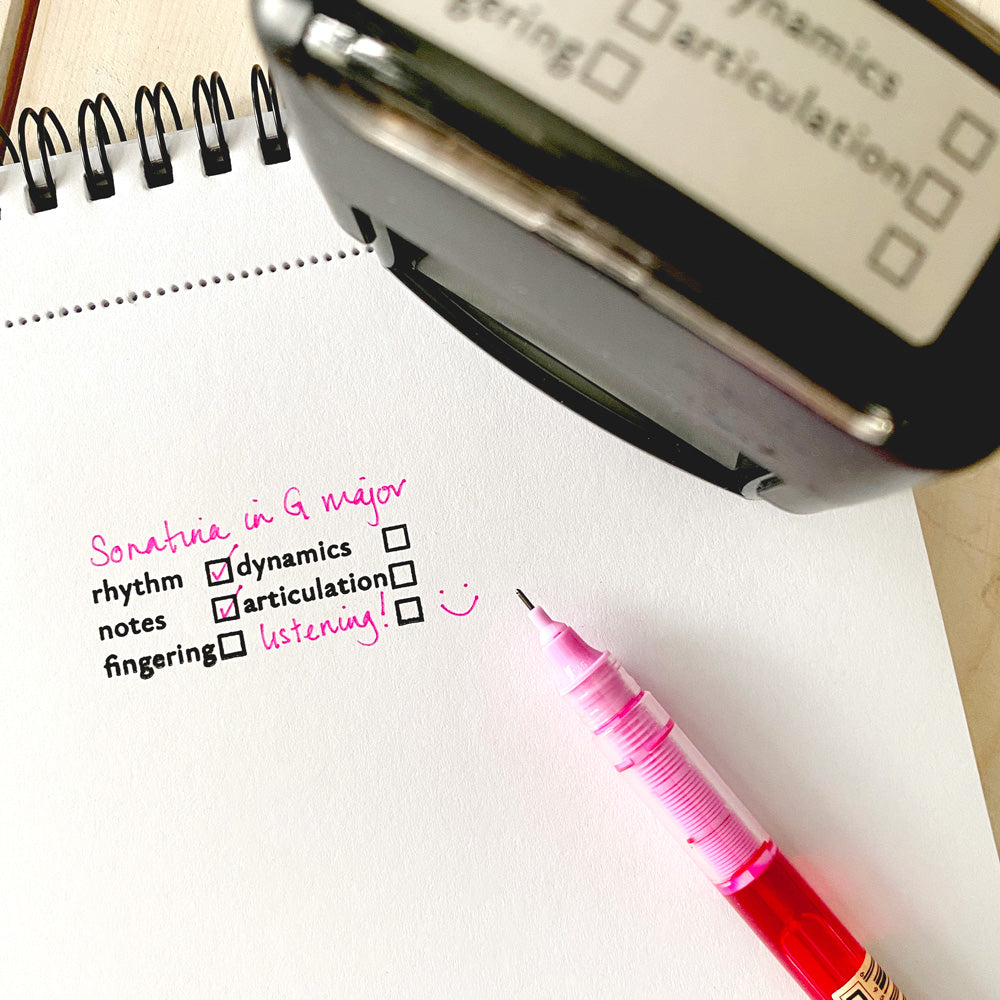 dynamics
articulation
gering
Sonatina in G major
rhythm ☑ dynamics ☐
notes ☑ articulation ☐
fingering ☐ listening! ☐ :)